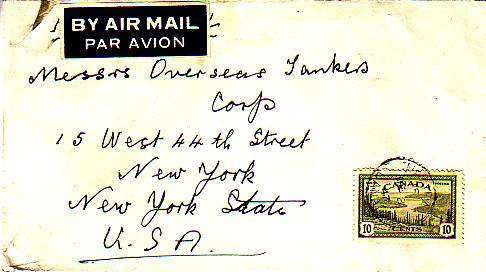 BY AIR MAIL
PAR AVION
Messrs Overseas Tankers
Corp
15 West 44th Street
New York
New York State
U.S.A.
CANADA
10 CENTS 10